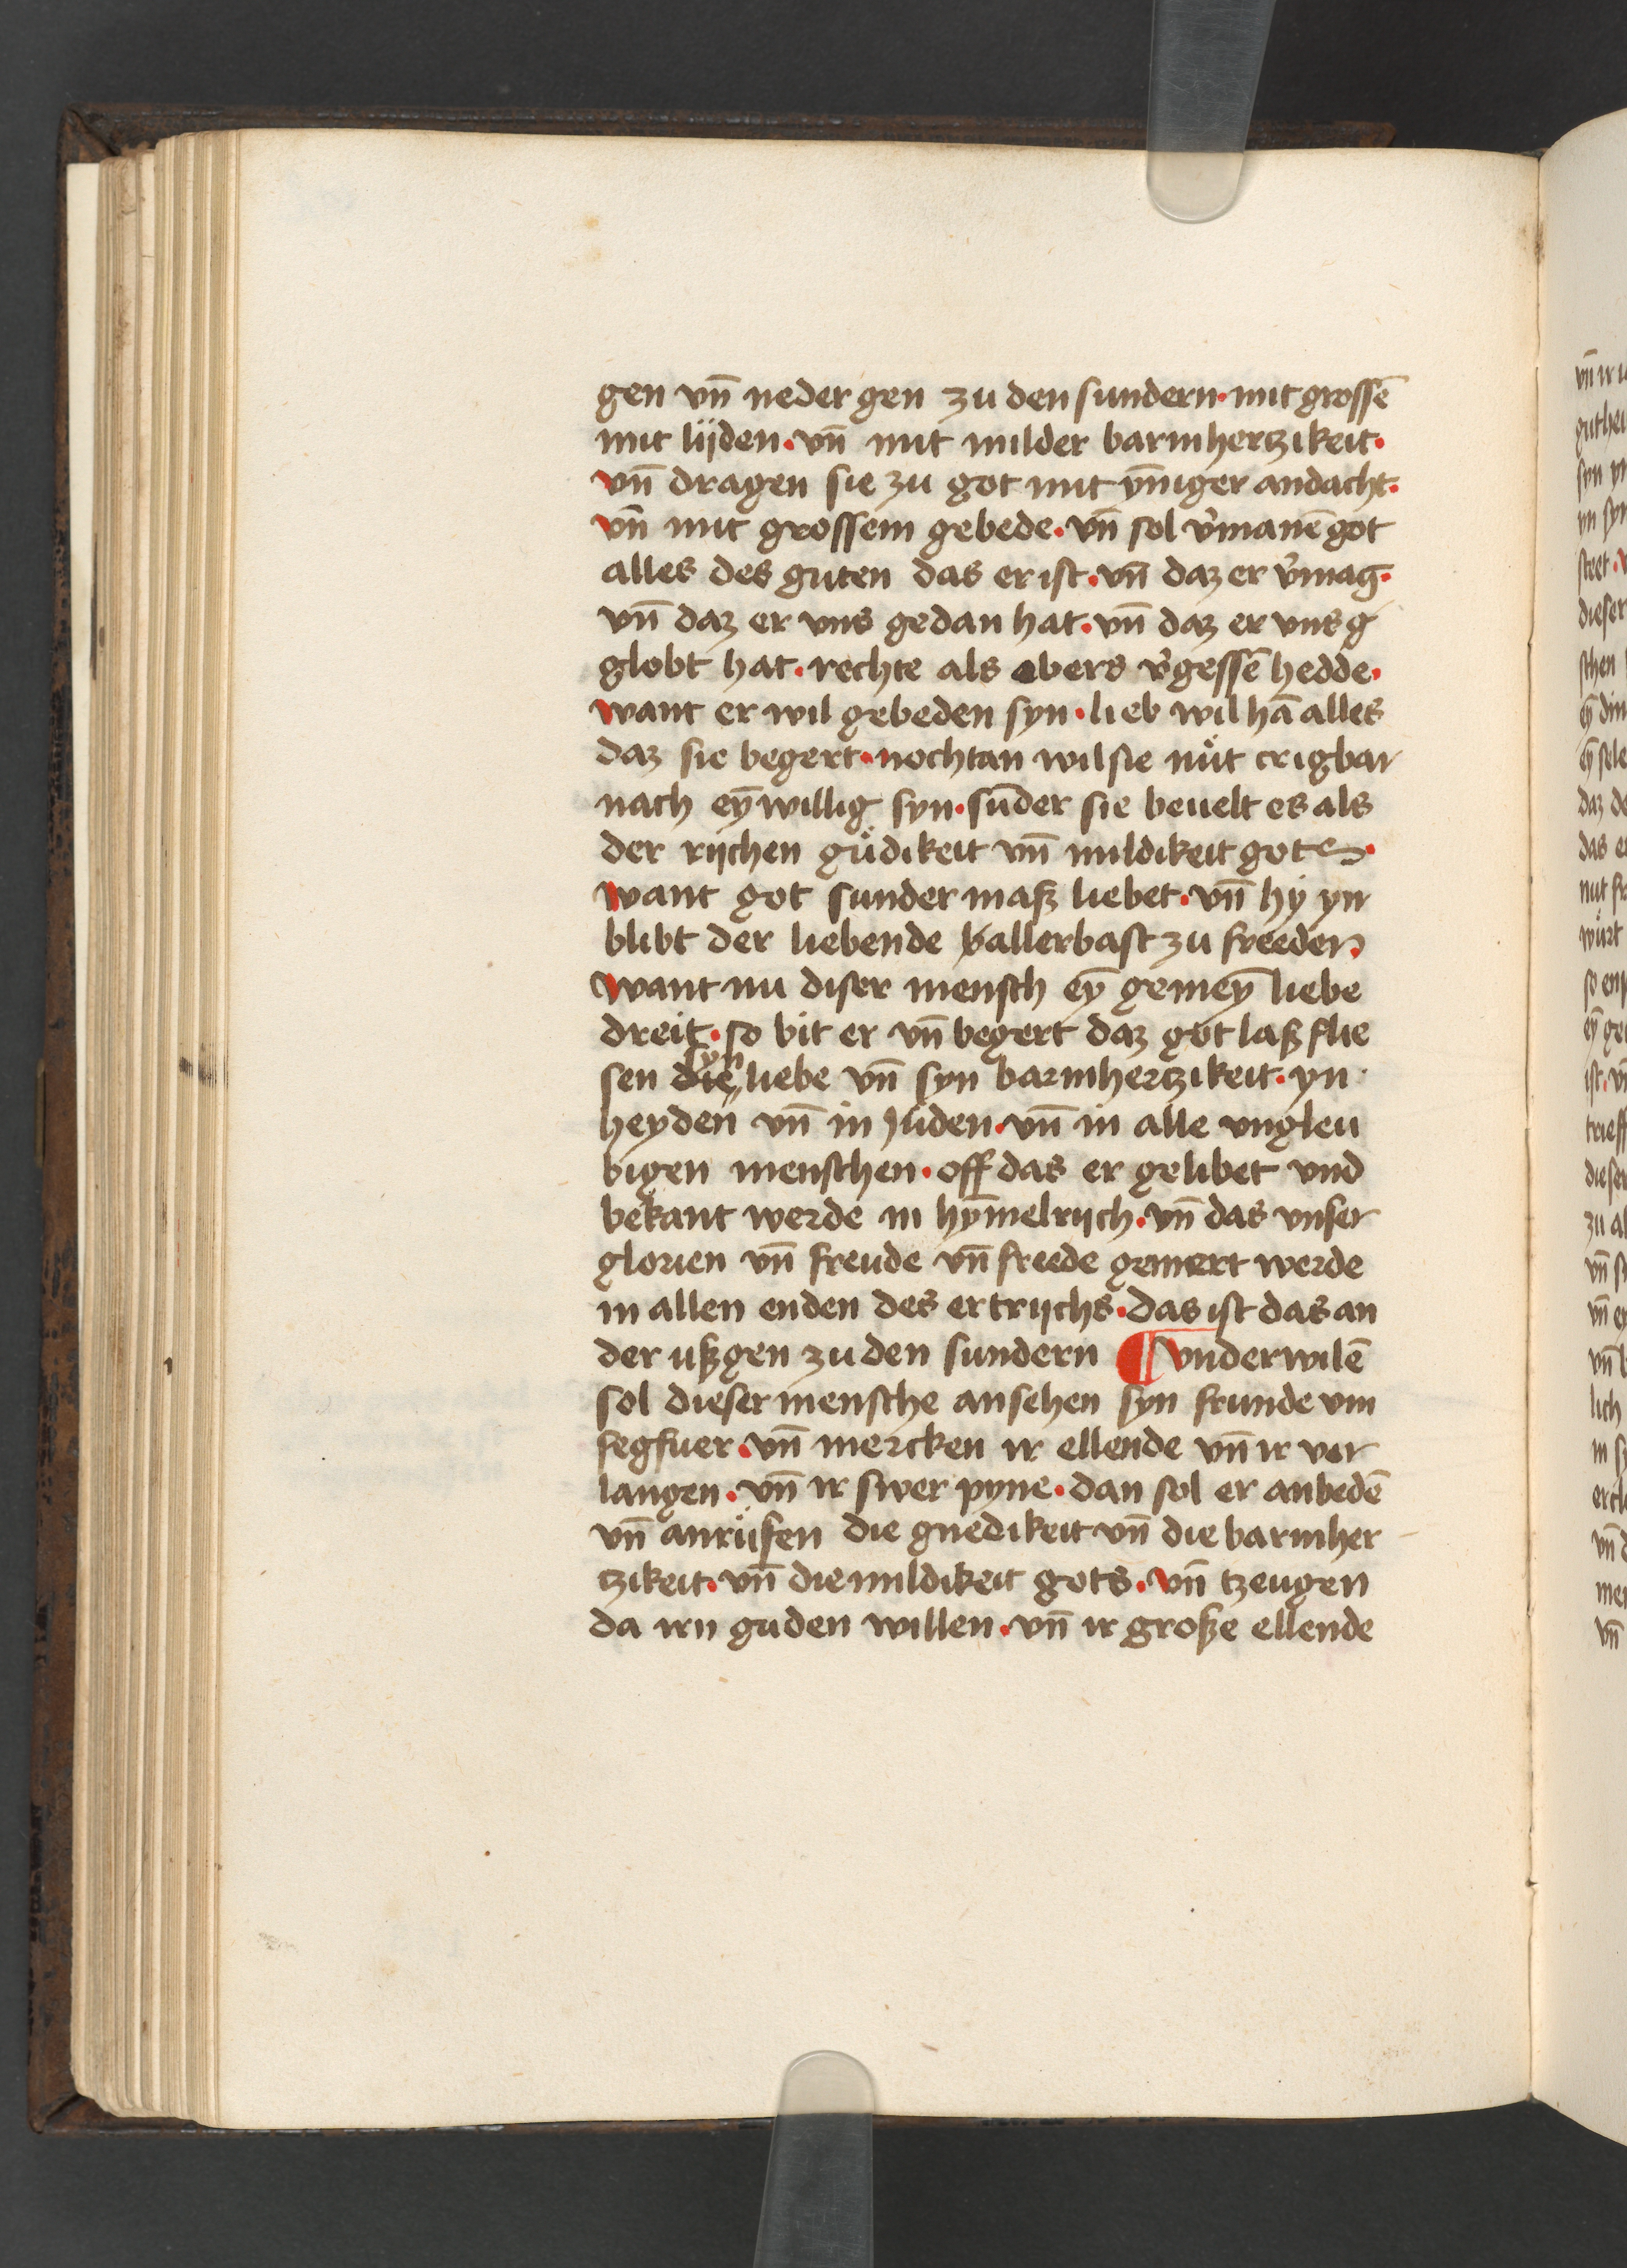 gen vn̄ neder gen zu den sundern · mit grossē
mit lijden · vn̄ mit milder barmhertzikeit ·
vn̄ dragen sie zu got mit ȳniger andacht ·
vn̄ mit grossem gebede · vn̄ sol v̾manē got
alles des guten das er ist · vn̄ daz er v̾mag ·
vn̄ daz er vns gedan hat · vn̄ daz er vns g
globt hat · rechte als obers v̾gessē hedde ·
want er wil gebeden syn · lieb wil hā alles
daz sie begert · nochtan wil sie nuͤt crigbar
nach eȳ willig syn · sūder sie beuelt es als
der rijchen guͤdikeit vn̄ mildikeit gotes ·
want got sunder masz liebet · vn̄ hy yn
blibt der liebende allerbast zu freeden
want nu diser mensch eȳ gemeȳ liebe
dreit · so bit er vn̄ begert daz got lasz flie
sen die syn liebe vn̄ syn barmhertzikeit · yn
heyden vn̄ in juden · vn̄ in alle vngleu
bigen menschen · off das er gelibet vnd
bekant werde in hȳmelrijch · vn̄ das vnser
glorien vn̄ freude vn̄ freede gemert werde
in allen enden des ertrijchs · das ist das an
der uszgen zu den sundern ¶ vnderwilē
sol dieser mensche ansehen syn frunde vm
fegfuer · vn̄ mercken ir ellende vn̄ ir ver
langen · vn̄ ir swer pyne · dan sol er anbedē
vn̄ anruͤfen die gnedikeit vn̄ die barmher
tzikeit · vn̄ die mildikeit gots · vn̄ tzeugen
da irn guden willen · vn̄ ir grosze ellende